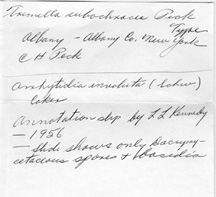 Tremella subochracea Peck
Type
Albany - Albany Co. New York
C H Peck
Arrhytidia involuta (Schw)
Coker
Annotation slip by L L Kennedy
- 1956
- Slide shows only Dacrymy-
cetaceous spores & basidia